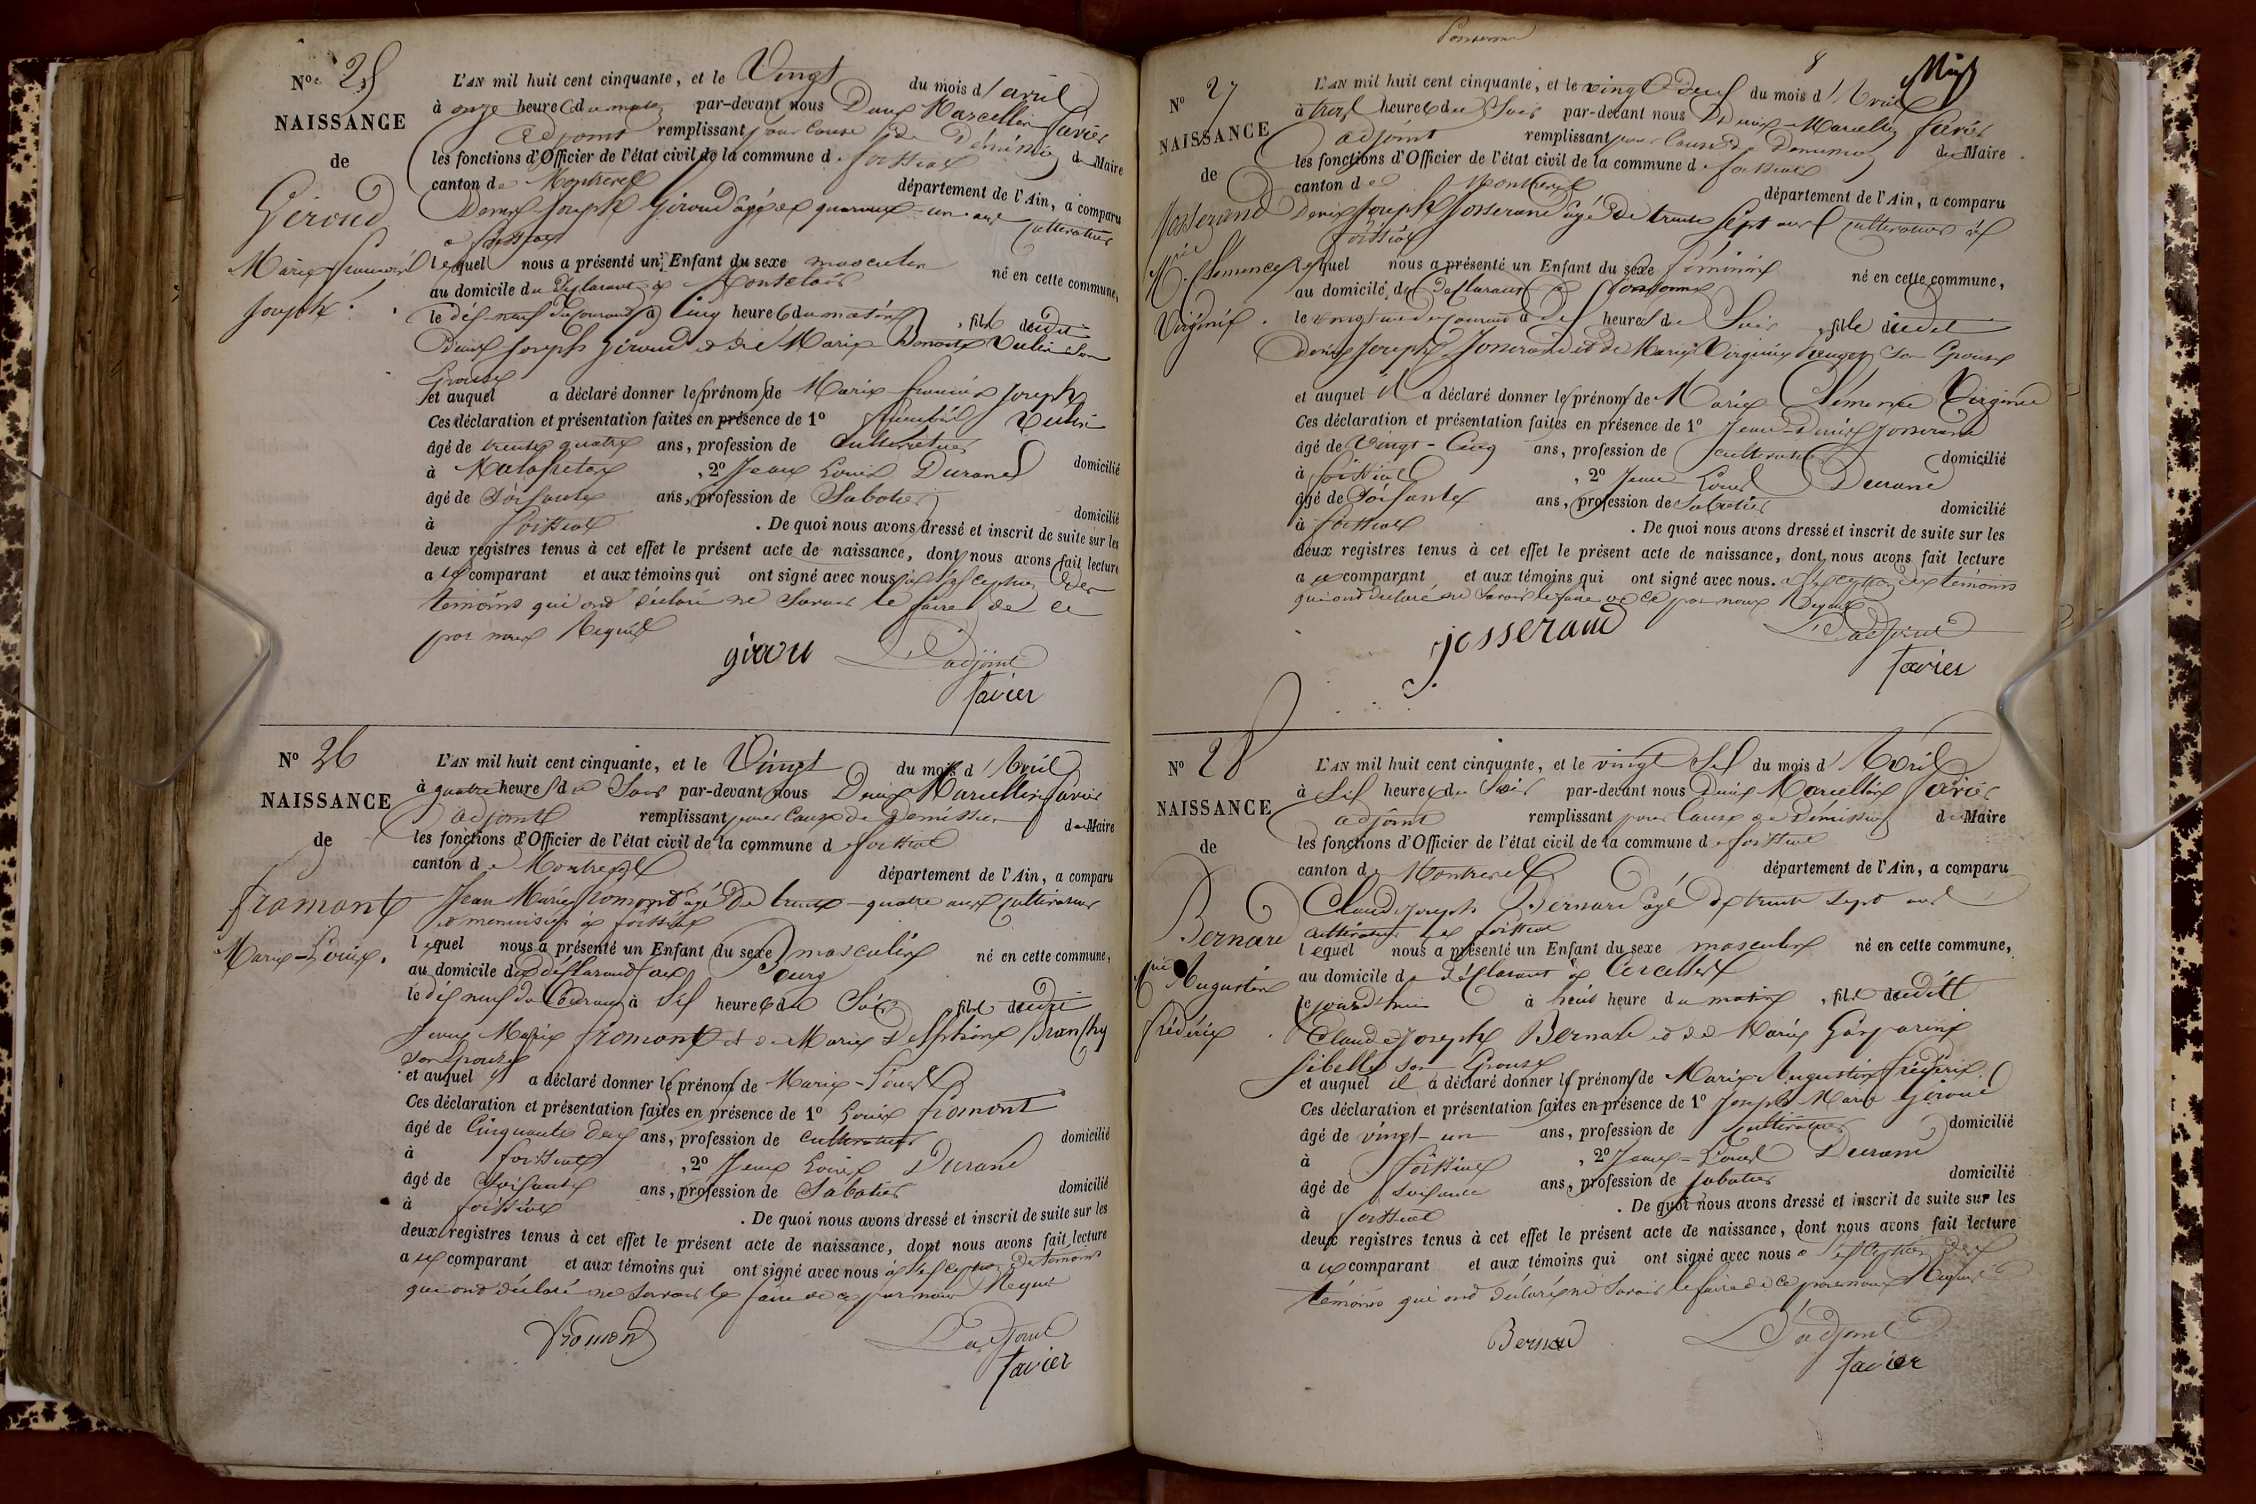 Nº 25
NAISSANCE
de
Giroud
Marie François
Joseph.
L'AN mil huit cent cinquante, et le Vingt du mois d'avril
à onze heures du matin par-devant nous Denis Marcellin favier
adjoint remplissant pour cause de Démission de Maire
les fonctions d'Officier de l'état civil de la commune de foissiat
canton de Montrevel département de l'Ain, a comparu
Denis Joseph Giroud âgé de quarante-un ans cultivateur
a foissiat
lequel nous a présenté un Enfant du sexe masculin né en cette commune,
au domicile du déclarant à
le dis-neuf du courant à cinq heures du matin, fils dudit
Denis Joseph Giroud et de Marie Vulin son
Epouse
et auquel a déclaré donner les prénoms de Marie françois Joseph
Ces déclaration et présentation faites en présence de 1º Vulin
âgé de trente quatre ans, profession de Cultivateur domicilié
à Malafretaz, 2º Jean Louis Durand
âgé de Soisante ans, profession de Sabotier domicilié
à foissiat. De quoi nous avons dressé et inscrit de suite sur les
deux registres tenus à cet effet le présent acte de naissance, dont nous avons fait lecture
a ux comparant et aux témoins qui ont signé avec nous à l'exception des
témoins qui ont déclaré ne Savoir le faire de ce
par nous Requis
girou L'adjoint
favier
Nº 26
NAISSANCE
de
fromont
Marie-Louis.
L'AN mil huit cent cinquante, et le Vingt du mois d'Avril
à quatre heures du Soir par-devant nous Denis Marcellin favier
adjoint remplissant pour Cause de Démission de Maire
les fonctions d'Officier de l'état civil de la commune de foissiat
canton de Montrevel département de l'Ain, a comparu
Jean Marie fromont âgé De trente-quatre ans Cultivateur
et menuisier à foissiat
lequel nous a présenté un Enfant du sexe masculin né en cette commune,
au domicile du déclarant au Bourg
le dis neuf du Courant à Sis heures du Soir, fils dudit
Jean Marie fromont et de Marie Delphine
son Epouse
et auquel il a déclaré donner les prénoms de Marie-Louis
Ces déclaration et présentation faites en présence de 1º Louis fromont
âgé de Cinquante deux ans, profession de cultivateur domicilié
à foissiat, 2º Jean Louis Durand
âgé de Soisante ans, profession de Sabotier domicilié
à foissiat. De quoi nous avons dressé et inscrit de suite sur les
deux registres tenus à cet effet le présent acte de naissance, dont nous avons fait lecture
a ux comparant et aux témoins qui ont signé avec nous à l'exception des témoins
qui ont déclaré ne Savoir le faire de ce par nous Requis
fromont L'adjoint
favier
8
Nº 27
NAISSANCE
de
Josserand
Mie Clémence
Virginie.
L'AN mil huit cent cinquante, et le vingt Deux du mois d'Avril
à trois heures du Soir par-devant nous Denis Marcellin favier
adjoint remplissant pour Cause de Démission de Maire
les fonctions d'Officier de l'état civil de la commune de foissiat
canton de Montrevel département de l'Ain, a comparu
Denis Joseph Josserand âgé de trente Sept ans Cultivateur à
foissiat
lequel nous a présenté un Enfant du sexe féminin né en cette commune,
au domicile du déclarant à
le vingt un du courant à dis heures du Soir, fille dudit
Denis Joseph Josserand et de Marie Virginie son Epouse
et auquel il a déclaré donner les prénoms de Marie Clémence Virginie
Ces déclaration et présentation faites en présence de 1º Jean-Denis Josserand
âgé de Vingt-Cinq ans, profession de cultivateur domicilié
à foissiat, 2º Jean Louis Durand
âgé de Soisante ans, profession de Sabotier domicilié
à foissiat. De quoi nous avons dressé et inscrit de suite sur les
deux registres tenus à cet effet le présent acte de naissance, dont nous avons fait lecture
a ux comparant et aux témoins qui ont signé avec nous. à l'exception des témoins
qui ont déclaré ne Savoir le faire de ce par nous Requis
josserand L'adjoint
favier
Nº 28
NAISSANCE
de
Bernard
Mie Augustin
frédéric.
L'AN mil huit cent cinquante, et le vingt Sis du mois d'Avril
à Sis heures du Soir par-devant nous Denis Marcellin favier
adjoint remplissant pour Cause de Démission de Maire
les fonctions d'Officier de l'état civil de la commune de foissiat
canton de Montrevel département de l'Ain, a comparu
Claude Joseph Bernard âgé de trente sept ans
cultivateur à foissiat
lequel nous a présenté un Enfant du sexe masculin né en cette commune,
au domicile du déclarant à
le jourd'hui à heure du matin, fils dudit
Claude Joseph Bernard et de Marie
Sibelle son Epouse
et auquel il a déclaré donner les prénoms de Marie Augustin frédéric
Ces déclaration et présentation faites en présence de 1º Joseph Marie Giroud
âgé de vingt-un ans, profession de Cultivateur domicilié
à foissiat, 2º Jean-Louis Durand
âgé de Soisante ans, profession de Sabotier domicilié
à foissiat. De quoi nous avons dressé et inscrit de suite sur les
deux registres tenus à cet effet le présent acte de naissance, dont nous avons fait lecture
a ux comparant et aux témoins qui ont signé avec nous à l'exception des
témoins qui ont déclaré ne Savoir le faire de ce par nous Requis
Bernad L'adjoint
favier